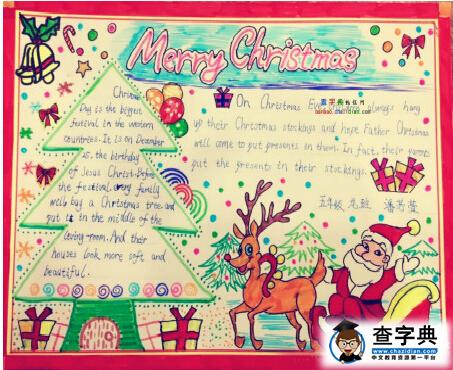 Merry Christmas
Christmas
Day is the biggest
festival in the western
countries. It is on December
is the birthday
of Jesus Christ. Before
the festival, every family
will buy a Christmas tree and
put it in the middle of the
living-room. And their
houses look more soft and
beautiful.
On Christmas Eve, always hang
up their Christmas stockings and hope Father Christmas
will come to put presents in them. In fact, their parents
put the presents in their stockings.
五年级
查字典
查字典
中文教育资源第一平台
www.chazidian.com